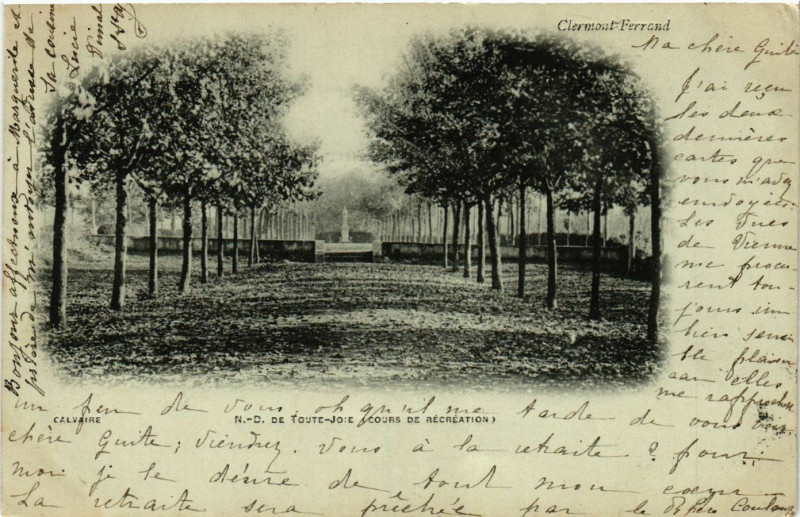 Clermont-Ferrand
Ma chère Guite
J'ai reçu
les deux
dernières
cartes que
vous m'avez
envoyées
Les vues
de Vienne
me procu-
rent tou-
jours un
bien sensi
ble plaisir
car elles
me rapprochent
un peu de vous, oh qu'il me tarde de vous voir,
CALVAIRE
N.-D. DE TOUTE-JOIE (COURS DE RÉCRÉATION)
chère Guite; viendrez-vous à la retraite? pour
moi je le désire de tout mon cœur
La retraite sera prêchée par le père
Bonjour affectueux à Marguerite et
m'envoyer l'adresse de
sa cousine
Lucie